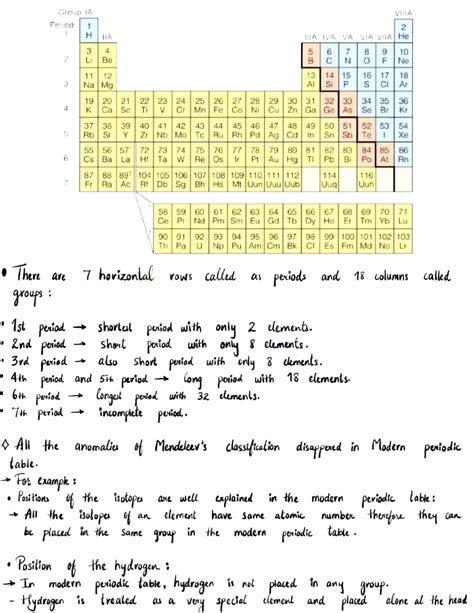 Group IA VIIIA
Period 1 2
1 H IIA IIIA IVA VA VIA VIIA He
3 4 5 6 7 8 9 10
2 Li Be B C N O F Ne
11 12 13 14 15 16 17 18
3 Na Mg Al Si P S Cl Ar
19 20 21 22 23 24 25 26 27 28 29 30 31 32 33 34 35 36
4 K Ca Sc Ti V Cr Mn Fe Co Ni Cu Zn Ga Ge As Se Br Kr
37 38 39 40 41 42 43 44 45 46 47 48 49 50 51 52 53 54
5 Rb Sr Y Zr Nb Mo Tc Ru Rh Pd Ag Cd In Sn Sb Te I Xe
55 56 57* 72 73 74 75 76 77 78 79 80 81 82 83 84 85 86
6 Cs Ba La Hf Ta W Re Os Ir Pt Au Hg Tl Pb Bi Po At Rn
87 88 89† 104 105 106 107 108 109 110 111 112 114 116
7 Fr Ra Ac Rf Db Sg Bh Hs Mt Uun Uuu Uub Uuq Uuh
58 59 60 61 62 63 64 65 66 67 68 69 70 71
Ce Pr Nd Pm Sm Eu Gd Tb Dy Ho Er Tm Yb Lu
90 91 92 93 94 95 96 97 98 99 100 101 102 103
Th Pa U Np Pu Am Cm Bk Cf Es Fm Md No Lr
• There are 7 horizontal rows called as periods and 18 columns called
groups :
• 1st period → shortest period with only 2 elements.
• 2nd period → short period with only 8 elements.
• 3rd period → also short period with only 8 elements.
• 4th period and 5th period → long period with 18 elements.
• 6th period → longest period with 32 elements.
• 7th period → incomplete period.
◇ All the anomalies of Mendeleev's classification disappered in Modern periodic
table.
→ For example :
• Positions of the isotopes are well explained in the modern periodic table:
→ All the isotopes of an element have same atomic number therefore they can
be placed in the same group in the modern periodic table.
• Position of the hydrogen :
→ In modern periodic table, hydrogen is not placed in any group.
- Hydrogen is treated as a very special element and placed alone at the head